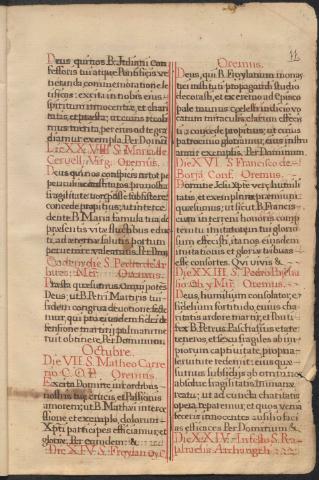 Deus qui nos B. Juliani con
fessoris tui atque Pontificis ve
neranda commemoratione læ
tificas: excita in nobis eius
spiritum innocentiæ, et chari
tatis, et præsta; ut cuius recolimus
merita, per eius ad te gra
diamur exempla. Per Dom.
Die XXVIII S. Mariæ de
Cervell. Virg. Oremus.
Deus qui nos conspicis
fragilitate subsistere:
concede propitius; ut interce
dente B. Maria famula tua de
præsentis vitæ fluctibus educ
ti, ad æternæ salutis portum
pervenire valeamus. Per Dom.
Eodem die S. Pedro de Ar
bues; Mr. Oremus.
Præsta quæsumus omnipotens
Deus; ut B. Petri Martiris tui
fidem congrua devotione secte
mur, qui pro eiusdem fidei de
fensione martirij palmam me
ruit obtinere. Per Dominum
Octubre.
Die VII. S. Matheo Carre
rio C. O. P. Oremus.
amorem; ut B. Mathæi interce
ssione et exemplo dolorum
Xpti participes efficiamur, et
gloriæ. Per eumdem: &
Die XIV S. Froylan O. C.
11
Oremus.
Deus, qui B. Froylanum monas
tici instituti propagandi studio
decorasti, et ex eremo ad Episco
pale munus cœlesti indicio vo
catum miraculis clarum effecis
ti: concede propitius; ut eius
patrocinio gloriemur, eius instru
amur exemplis. Per Dominum.
Die XVI. S. Francisco de
Borja Conf. Oremus.
Domine Jesu Xpte veræ humili
tatis, et exemplar et præmium:
quæsumus; ut sicut B. Francis
cum in terreni honoris comp
temptu imitatorem tui glorio
sum effecisti, ita nos eiusdem
imitationis, et gloriæ tribuas
esse consortes. Qui vivis &
Die XXIII S. Pedro Pasqua
sio Ob. y Mr. Oremus.
Deus, humilium consolator, et
fidelium fortitudo, cuius cha
ritatis ardore
B. Petrus Paschasius ætate
teneros, et sexu fragiles ab im
piorum captivitate, propria
servitute redemit: eius quæ
sumus subsidijs ab omni nos
absolve fragilitatis humanæ
reatu; ut ad cuncta charitatis
opera reparemur, et quos
teneris innocentes
efficaces. Per Dominum &
Die XXIV In festo S. Ra
phaelis Archangeli